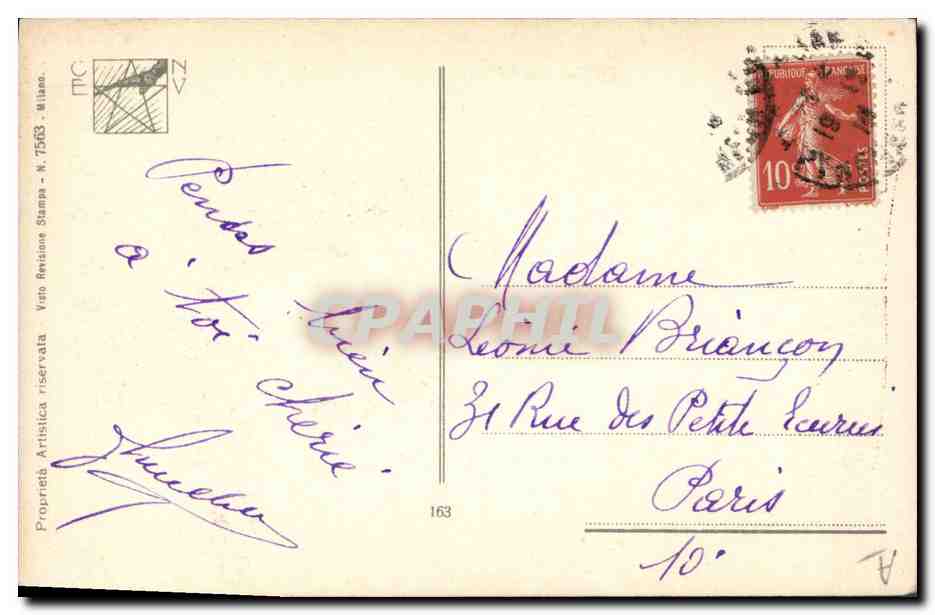 Proprietà Artistica riservata Visto Revisione Stampa - N. 7563 - Milano.
C E N V
Pensées
bien
à toi
chérie
RÉPUBLIQUE FRANÇAISE
10
POSTES
Madame
Léonie Briançon
31 Rue des Petite Ecuries
Paris
10e
163
CPAPHIL
A